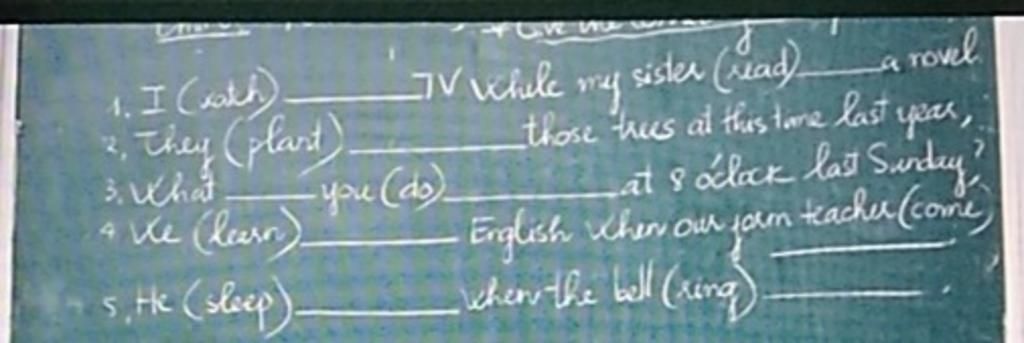 Give the
1. I (watch) ________ TV while my sister (read) _____ a novel.
2, They (plant) __________ those trees at this time last year,
3. What _____ you (do) __________ at 8 o'clock last Sunday?
4 We (learn) _________ English when our form teacher (come) __________
5, He (sleep) _________ when the bell (ring) _________ .